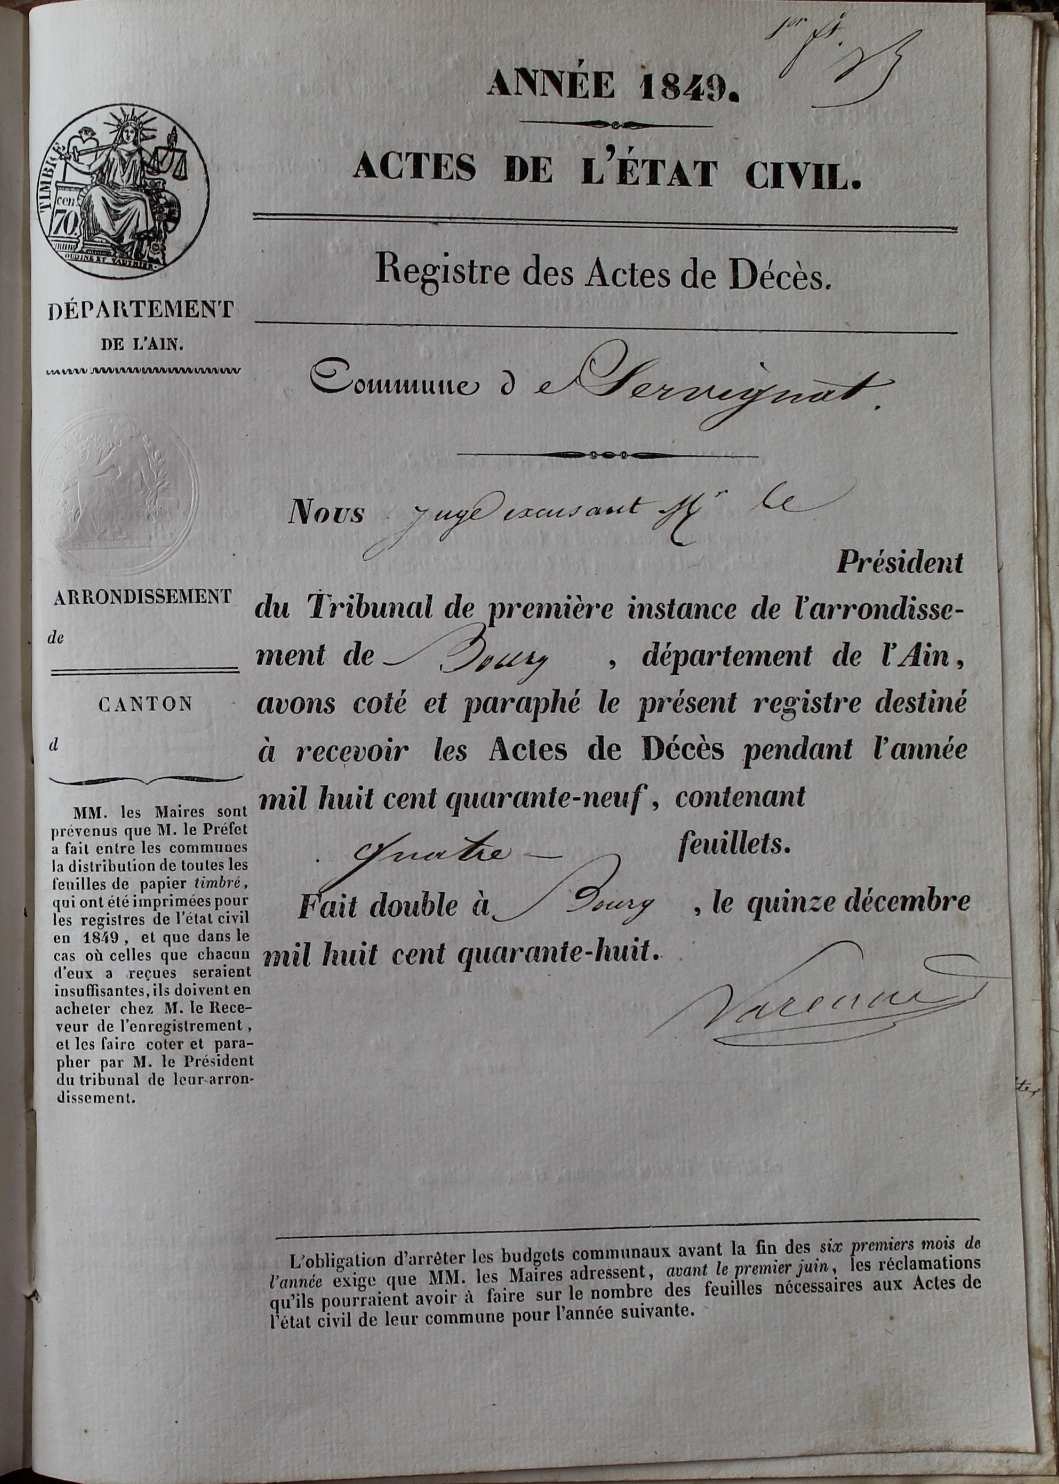 1er ft.
ANNÉE 1849.
ACTES DE L'ÉTAT CIVIL.
TIMBRE
cen.
70.
Registre des Actes de Décès.
DÉPARTEMENT
DE L'AIN.
Commune de Servignat.
Nous juge excusant Mr le
Président
du Tribunal de première instance de l'arrondisse-
ment de Bourg, département de l'Ain,
avons coté et paraphé le présent registre destiné
à recevoir les Actes de Décès pendant l'année
mil huit cent quarante-neuf, contenant
quatre — feuillets.
Fait double à Bourg, le quinze décembre
mil huit cent quarante-huit.
ARRONDISSEMENT
de
CANTON
d
MM. les Maires sont
prévenus que M. le Préfet
a fait entre les communes
la distribution de toutes les
feuilles de papier timbré,
qui ont été imprimées pour
les registres de l'état civil
en 1849, et que dans le
cas où celles que chacun
d'eux a reçues seraient
insuffisantes, ils doivent en
acheter chez M. le Rece-
veur de l'enregistrement,
et les faire coter et para-
pher par M. le Président
du tribunal de leur arron-
dissement.
L'obligation d'arrêter les budgets communaux avant la fin des six premiers mois de
l'année exige que MM. les Maires adressent, avant le premier juin, les réclamations
qu'ils pourraient avoir à faire sur le nombre des feuilles nécessaires aux Actes de
l'état civil de leur commune pour l'année suivante.